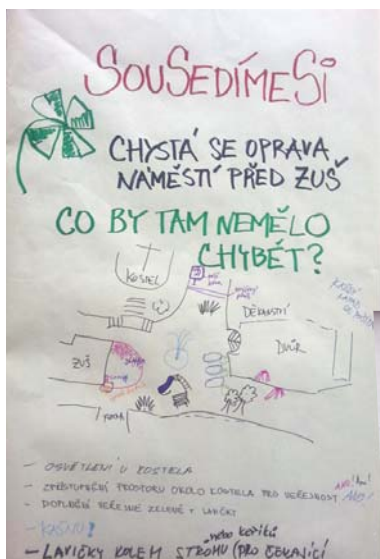 SOUSEDÍMESI
CHYSTÁ SE OPRAVA
NÁMĚSTÍ PŘED ZUŠ
CO BY TAM NEMĚLO
CHYBĚT?
KOSTEL
DĚKANSTVÍ
DVŮR
ZUŠ
- OSVĚTLENÍ U KOSTELA
- ZPŘÍSTUPNĚNÍ PROSTORU OKOLO KOSTELA PRO VEŘEJNOST ANO!
- DOPLNĚNÍ VEŘEJNÉ ZELENĚ + LAVIČKY
- KAŠNU!
nebo keříků
- LAVIČKY KOLEM STROMU (PRO ČEKAJÍCÍ